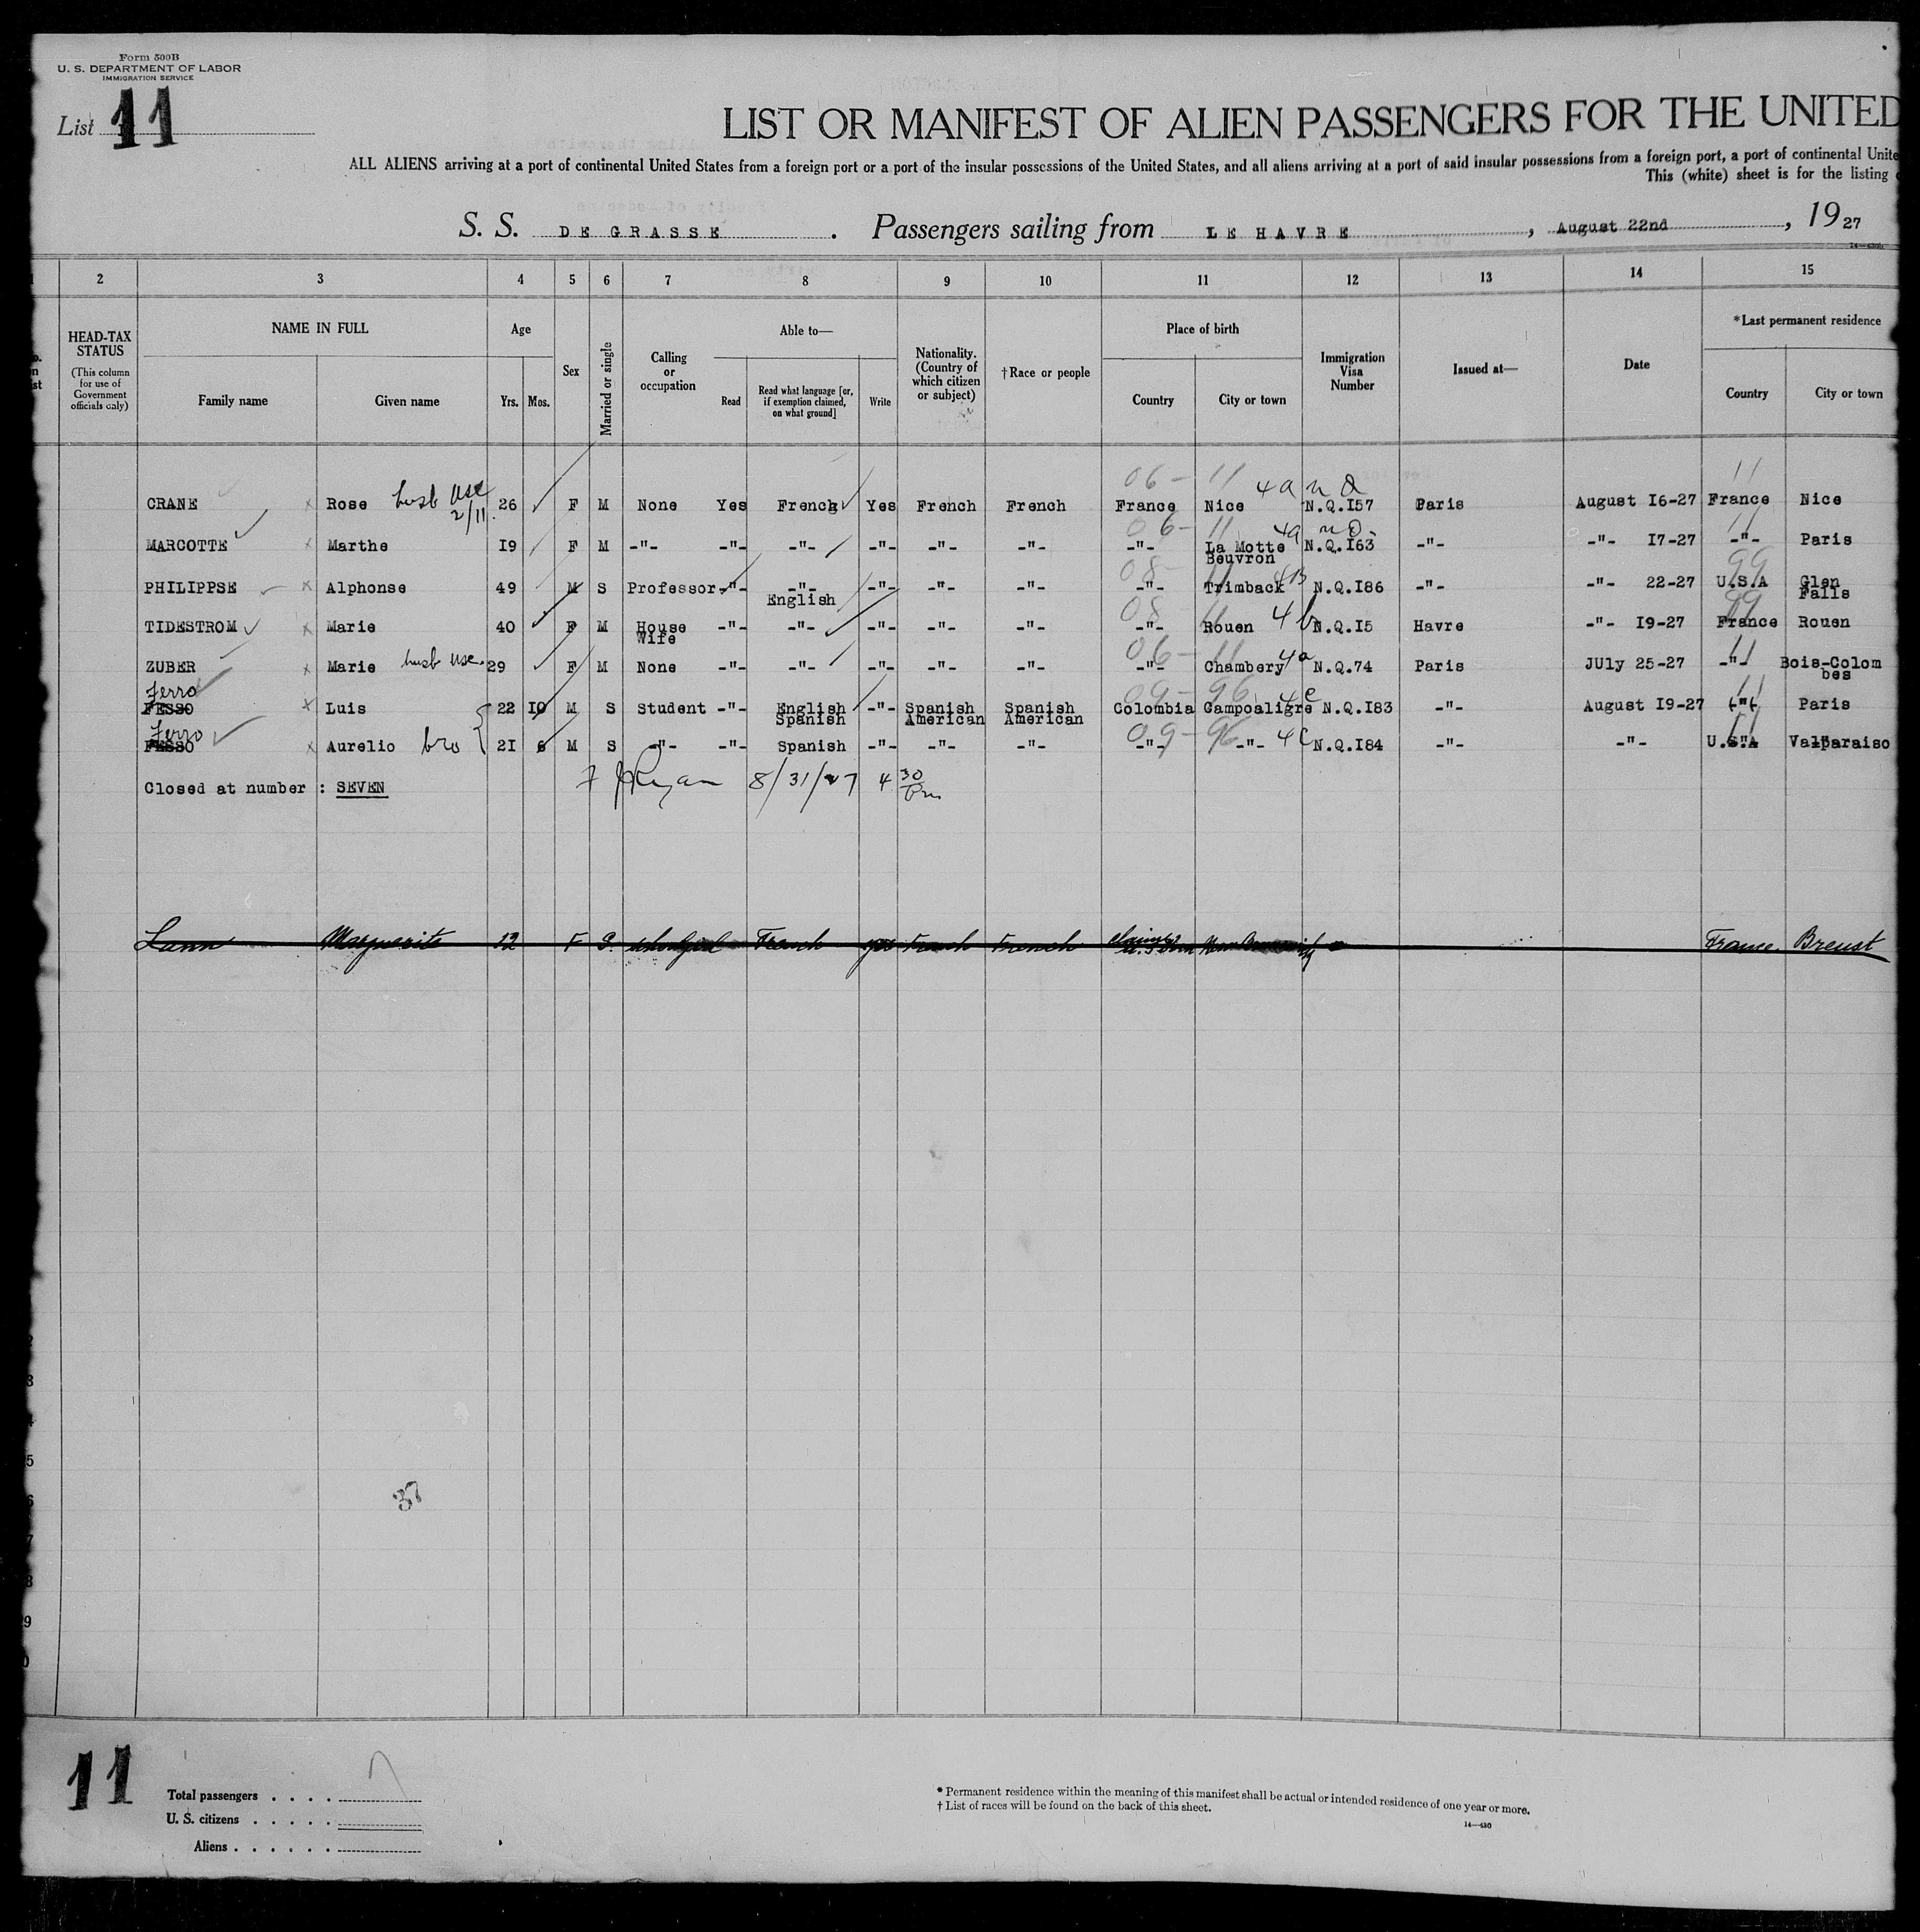 Form 500B
U. S. DEPARTMENT OF LABOR
IMMIGRATION SERVICE
List 11
LIST OR MANIFEST OF ALIEN PASSENGERS FOR THE UNITED
ALL ALIENS arriving at a port of continental United States from a foreign port or a port of the insular possessions of the United States, and all aliens arriving at a port of said insular possessions from a foreign port, a port of continental Unite
This (white) sheet is for the listing
S. S. DE GRASSE . Passengers sailing from LE HAVRE , August 22nd , 19 27
2 3 4 5 6 7 8 9 10 11 12 13 14 15
HEAD-TAX STATUS (This column for use of Government officials only)
NAME IN FULL
Family name Given name
Age
Yrs. Mos.
Sex
Married or single
Calling or occupation
Able to—
Read Read what language [or, if exemption claimed, on what ground] Write
Nationality. (Country of which citizen or subject)
†Race or people
Place of birth
Country City or town
Immigration Visa Number
Issued at—
Date
*Last permanent residence
Country City or town
06- 11 11
CRANE Rose husb USC 2/11. 26 F M None Yes French Yes French French France Nice 4a n Q N.Q.I57 Paris August I6-27 France Nice
06- 11 4a 11
MARCOTTE Marthe I9 F M -"- -"- -"- -"- -"- -"- -"- La Motte Beuvron N.Q.I63 -"- -"- I7-27 -"- Paris
08- 11 4B 99
PHILIPPSE Alphonse 49 M S Professor -"- -"- English -"- -"- -"- -"- Trimback N.Q.I86 -"- -"- 22-27 U.S.A Glen Falls
08- 11 4b 99
TIDESTROM Marie 40 F M House Wife -"- -"- -"- -"- -"- -"- Rouen N.Q.I5 Havre -"- I9-27 France Rouen
06- 11 4a 11
ZUBER Marie husb USC. 29 F M None -"- -"- -"- -"- -"- -"- Chambery N.Q.74 Paris JUly 25-27 -"- Bois-Colom bes
Ferro 09- 96 4c 11
FESSO Luis 22 IO M S Student -"- English Spanish -"- Spanish American Spanish American Colombia Campoaligre N.Q.I83 -"- August I9-27 -"- Paris
Ferro 09- 96 4c 11
FESSO Aurelio bro 2I 6 M S -"- -"- Spanish -"- -"- -"- -"- -"- N.Q.I84 -"- -"- U.S.A Valparaiso
Closed at number : SEVEN
8/31/27 4 30 Pm
Lann Marguerite 12 F S. schoolgirl French yes French French claims U.S. Born New Brunswick France Breust
37
11
Total passengers . . . . 7
U. S. citizens . . . . .
Aliens . . . . . .
* Permanent residence within the meaning of this manifest shall be actual or intended residence of one year or more.
† List of races will be found on the back of this sheet.
14—430